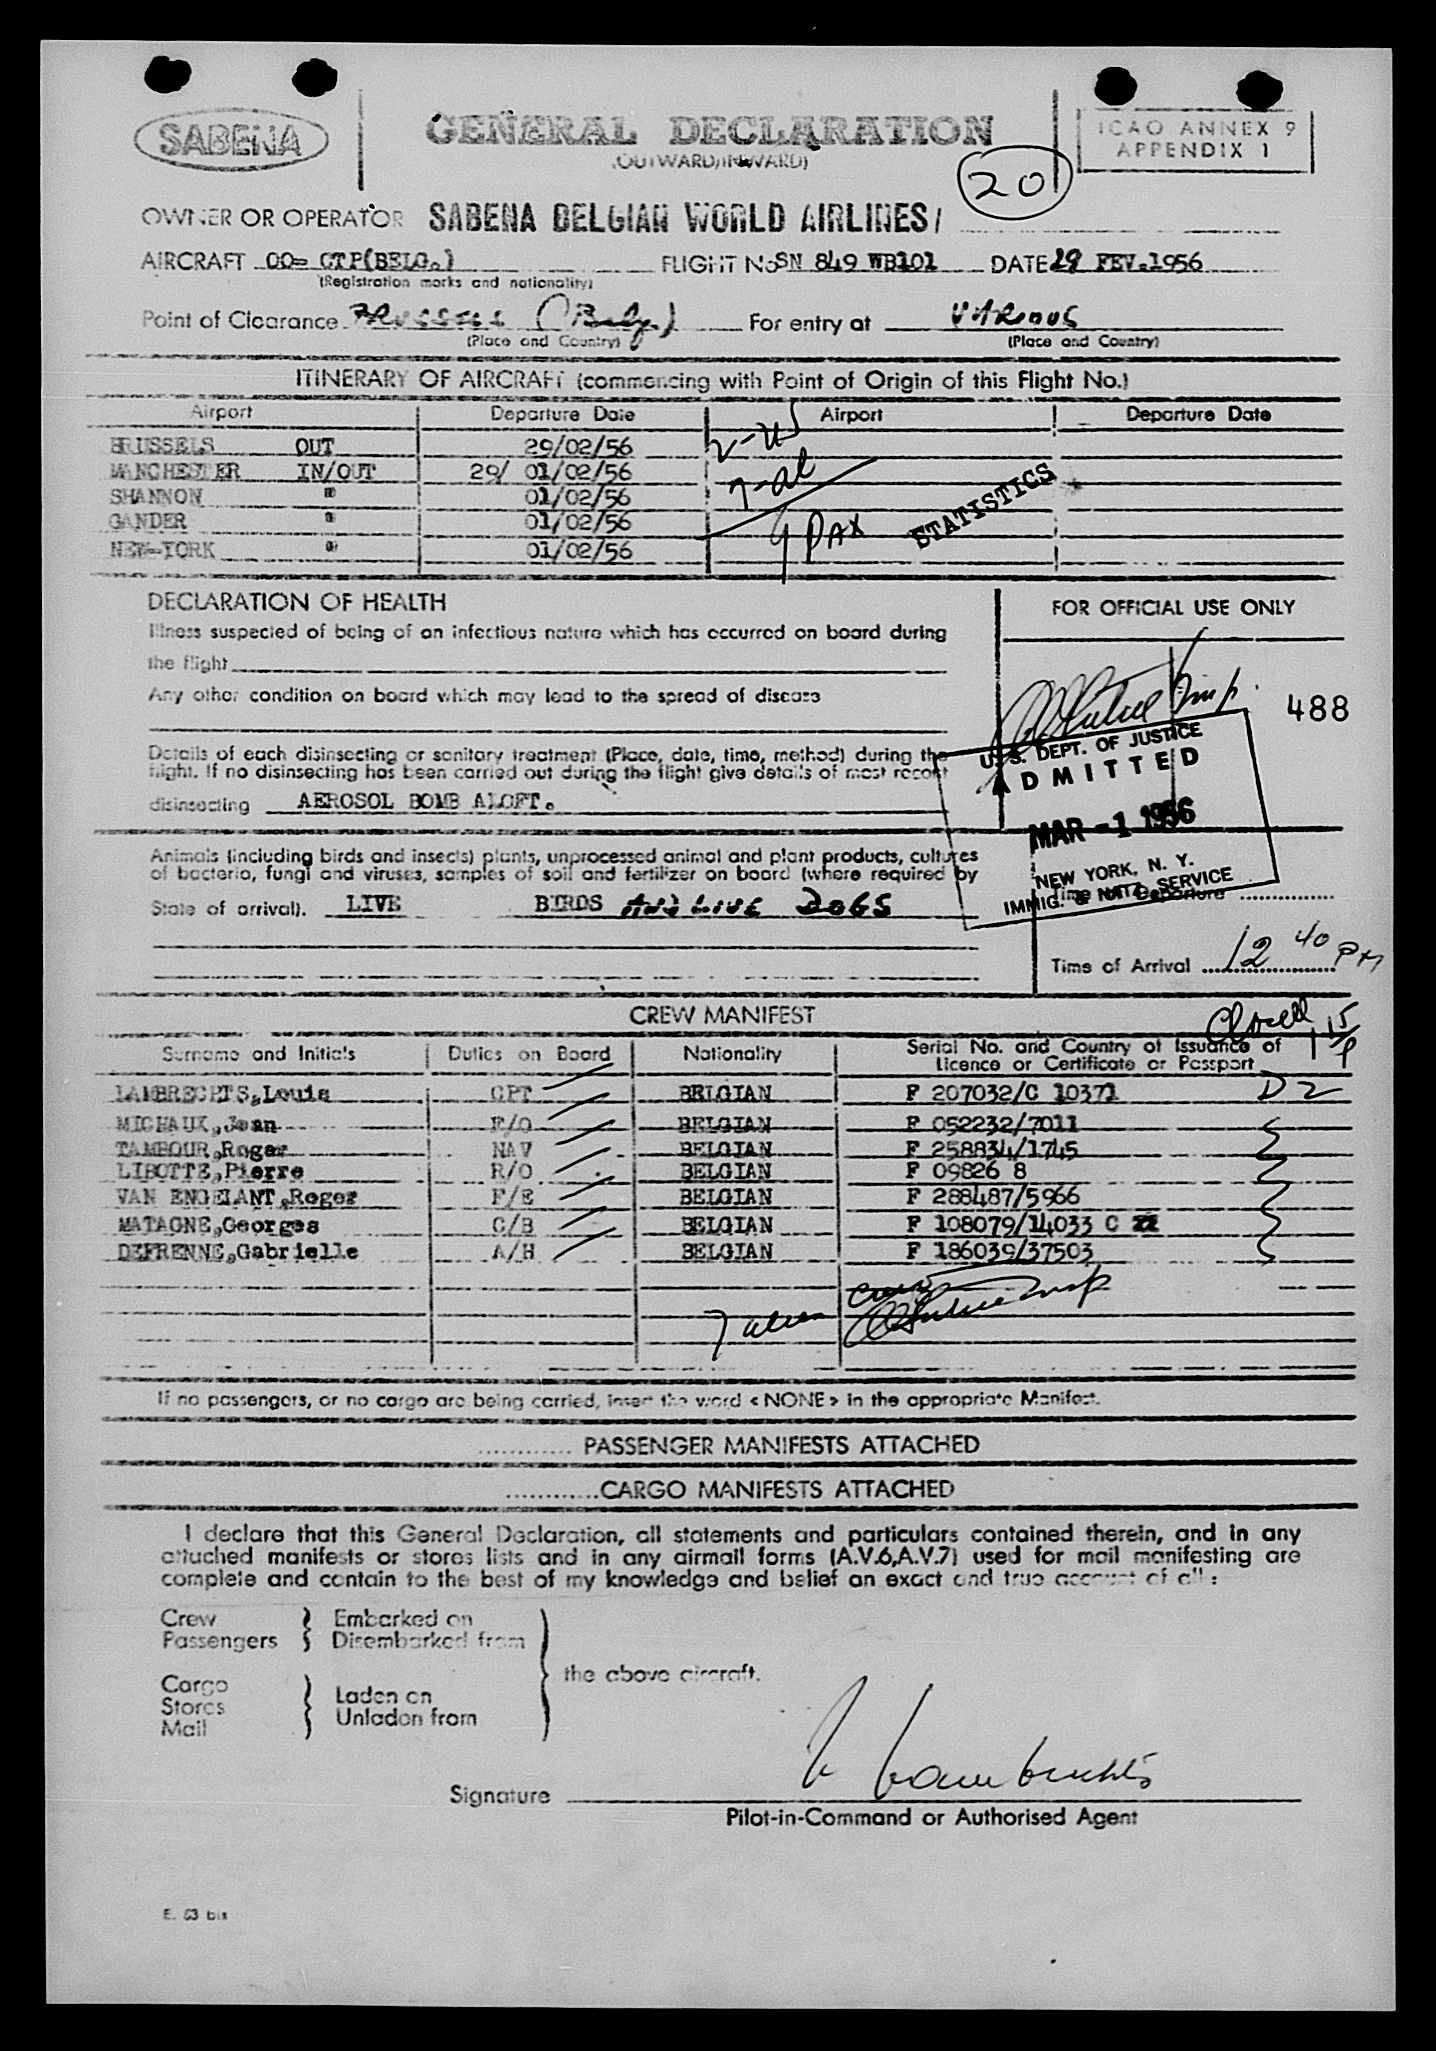 SABENA
GENERAL DECLARATION
(OUTWARD/INWARD)
ICAO ANNEX 9
APPENDIX 1
20
OWNER OR OPERATOR SABENA BELGIAN WORLD AIRLINES/
AIRCRAFT OO= CTP(BELG.) FLIGHT No SN 849 WB101 DATE 29 FEV.1956
(Registration marks and nationality)
Point of Clearance BRUSSELS (Belg.) For entry at VARIOUS
(Place and Country) (Place and Country)
ITINERARY OF AIRCRAFT (commencing with Point of Origin of this Flight No.)
Airport Departure Date Airport Departure Date
BRUSSELS OUT 29/02/56
MANCHESTER IN/OUT 29/ 01/02/56
SHANNON " 01/02/56
GANDER " 01/02/56
NEW-YORK " 01/02/56
2-US
7-al
9 PAX
STATISTICS
DECLARATION OF HEALTH
FOR OFFICIAL USE ONLY
Illness suspected of being of an infectious nature which has occurred on board during
the flight
Any other condition on board which may lead to the spread of disease
488
Details of each disinsecting or sanitary treatment (Place, date, time, method) during the
flight. If no disinsecting has been carried out during the flight give details of most recent
disinsecting AEROSOL BOMB ALOFT.
U. S. DEPT. OF JUSTICE
ADMITTED
MAR -1 1956
NEW YORK, N. Y.
IMMIG. & NATZ. SERVICE
Animals (including birds and insects) plants, unprocessed animal and plant products, cultures
of bacteria, fungi and viruses, samples of soil and fertilizer on board (where required by
State of arrival). LIVE BIRDS AND LIVE DOGS
Time of Departure
Time of Arrival 12 40 PM
CREW MANIFEST
Closed 1 15 P
Surname and Initials Duties on Board Nationality Serial No. and Country of Issuance of
Licence or Certificate or Passport
LAMBRECHTS,Louis CPT BELGIAN F 207032/C 10371 D 2
MICHAUX,Jean F/O BELGIAN F 052232/7011
TAMBOUR,Roger NAV BELGIAN F 258834/1745
LIBOTTE,Pierre R/O BELGIAN F 09826 8
VAN ENGELANT,Roger F/E BELGIAN F 288487/5966
MATAGNE,Georges C/B BELGIAN F 108079/14033 C
DEFRENNE,Gabrielle A/H BELGIAN F 186039/37503
7 alien crew
If no passengers, or no cargo are being carried, insert the word < NONE > in the appropriate Manifest.
............ PASSENGER MANIFESTS ATTACHED
............CARGO MANIFESTS ATTACHED
I declare that this General Declaration, all statements and particulars contained therein, and in any
attached manifests or stores lists and in any airmail forms (A.V.6,A.V.7) used for mail manifesting are
complete and contain to the best of my knowledge and belief an exact and true account of all :
Crew Embarked on
Passengers Disembarked from
the above aircraft.
Cargo
Stores Laden on
Mail Unladen from
Signature L Lambrechts
Pilot-in-Command or Authorised Agent
E. 63 bis